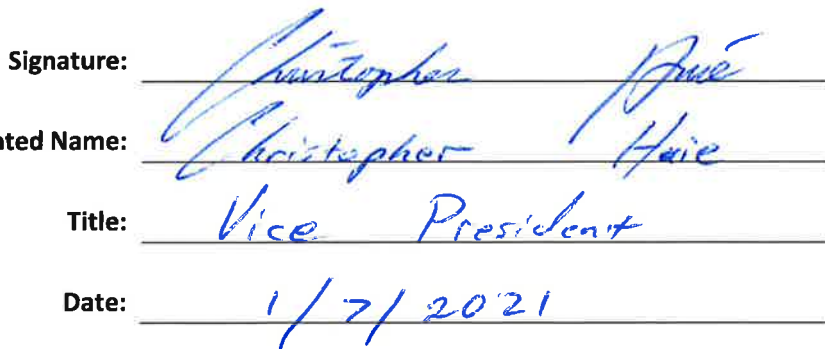 Signature: Christopher
nted Name: Christopher Haie
Title: Vice President
Date: 1/7/2021